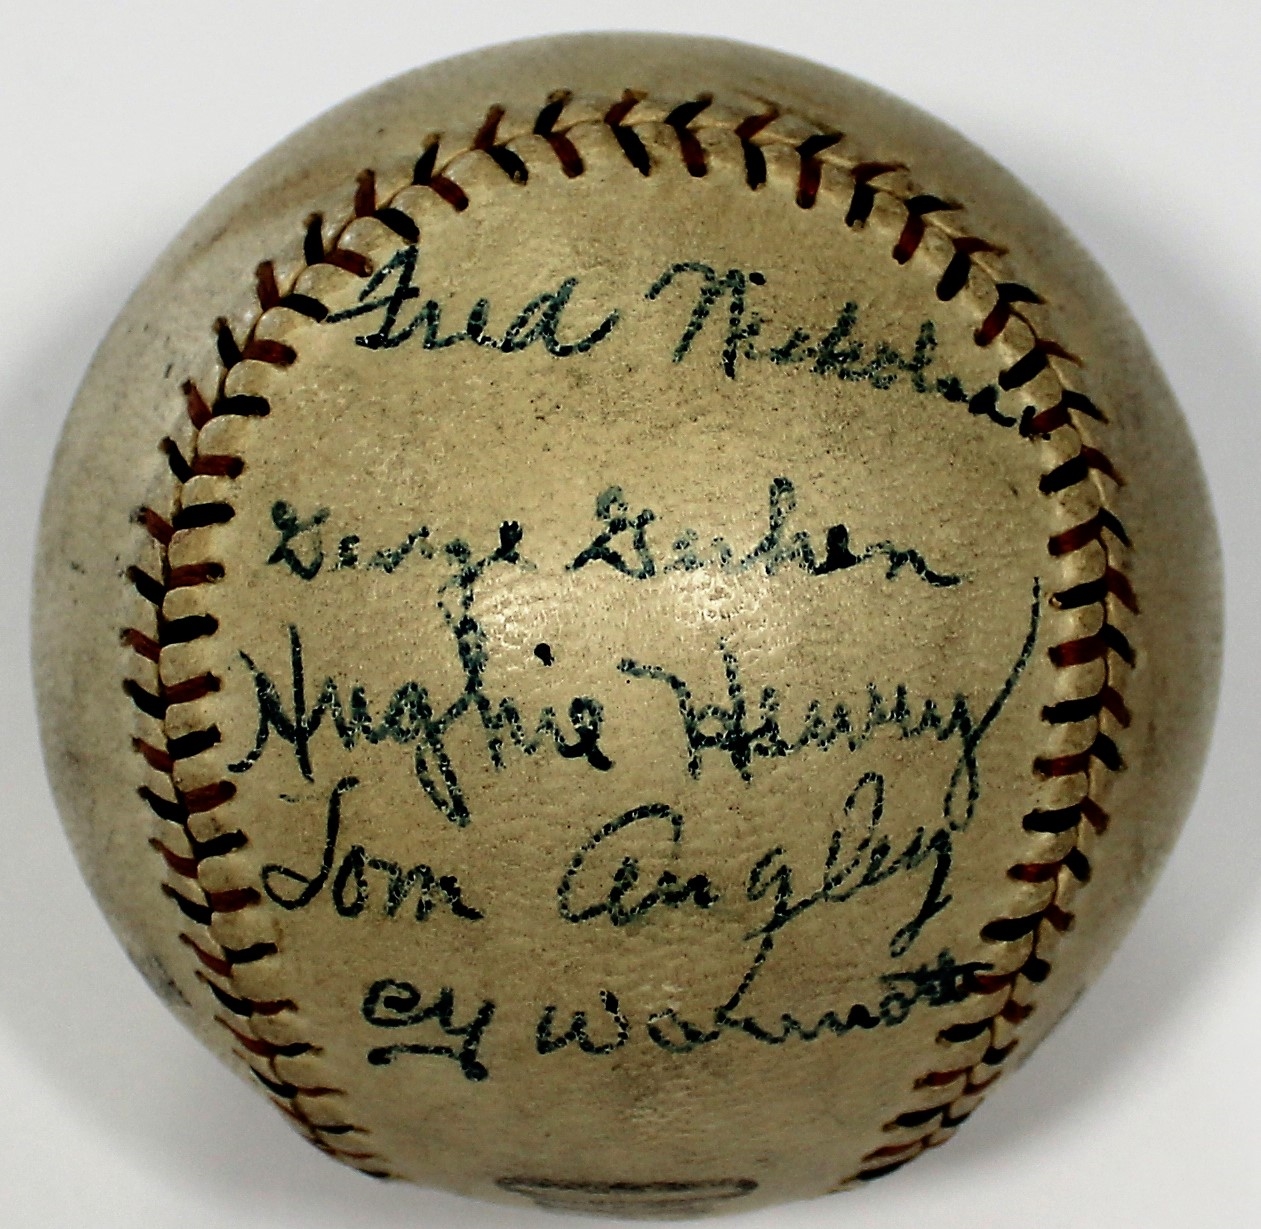 Fred Nickolson
George Gerken
Hughie Henry
Tom Angley
Cy Warmoth